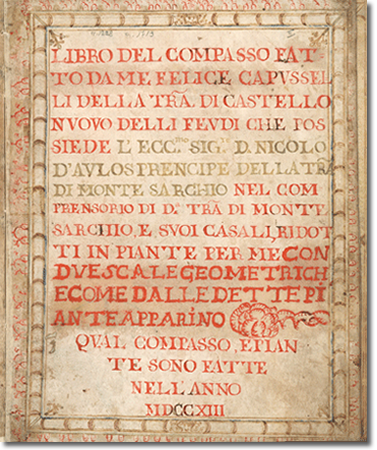 LIBRO DEL COMPASSO FAT
TO DA ME FELICE CAPVSSEL
LI DELLA TRA. DI CASTELLO
NVOVO DELLI FEVDI CHE POS
SIEDE L'ECC. SIG. D. NICOLO
D'AVLOS PRENCIPE DELLA TRA
DI MONTE SARCHIO NEL COM
PRENSORIO DI D. TRA DI MONTE
SARCHIO, E SVOI CASALI, RIDOT
TI IN PIANTE PER ME CON
DVE SCALE GEOMETRICH
E COME DALLE DETTE PI
ANTE APPARINO
QVAL COMPASSO, E PIAN
TE SONO FATTE
NELL'ANNO
MDCCXIII